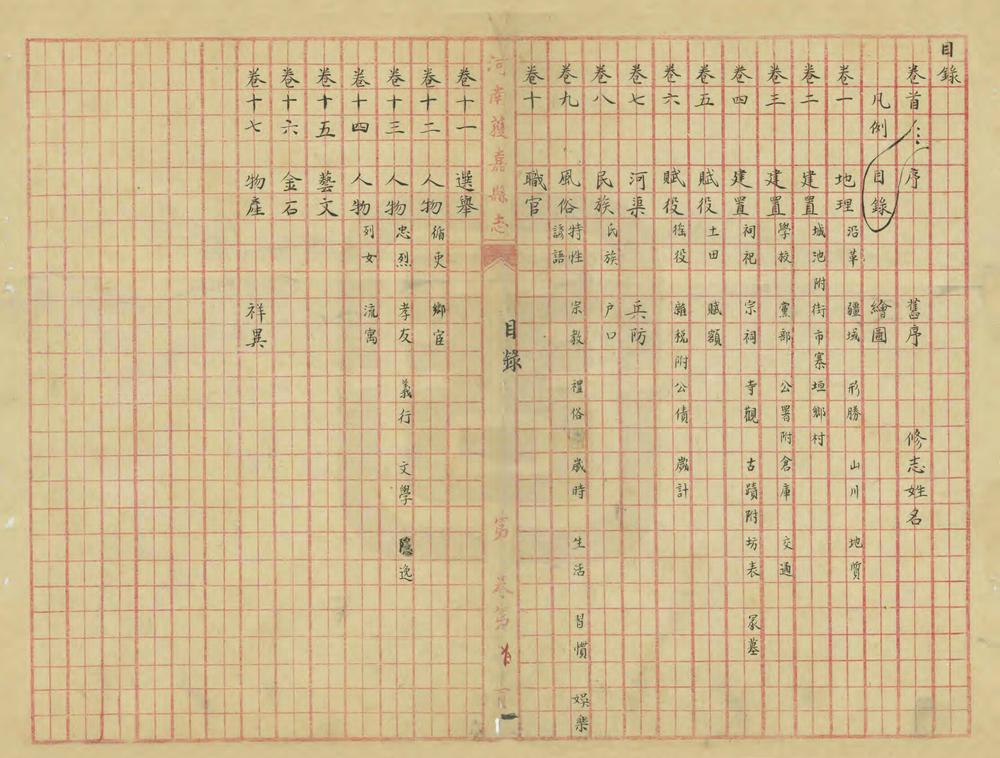 目錄
卷首 序 舊序 修志姓名
凡例 目錄 繪圖
卷一 地理 沿革 疆域 形勝 山川 地質
卷二 建置 城池附街市寨垣鄉村
卷三 建置 學校 黨部 公署附倉庫 交通
卷四 建置 祠祀 宗祠 寺觀 古蹟附坊表 冢墓
卷五 賦役 土田 賦額
卷六 賦役 徭役 雜稅附公債 歲計
卷七 河渠 兵防
卷八 民族 氏族 户口
卷九 風俗 特性 宗教 禮俗 歲時 生活 習慣 娛樂
謠語
卷十 職官
河南獲嘉縣志
目錄
第 卷第 頁
卷十一 選舉
卷十二 人物 循吏 鄉宦
卷十三 人物 忠烈 孝友 義行 文學 隱逸
卷十四 人物 列女 流寓
卷十五 藝文
卷十六 金石
卷十七 物產 祥異